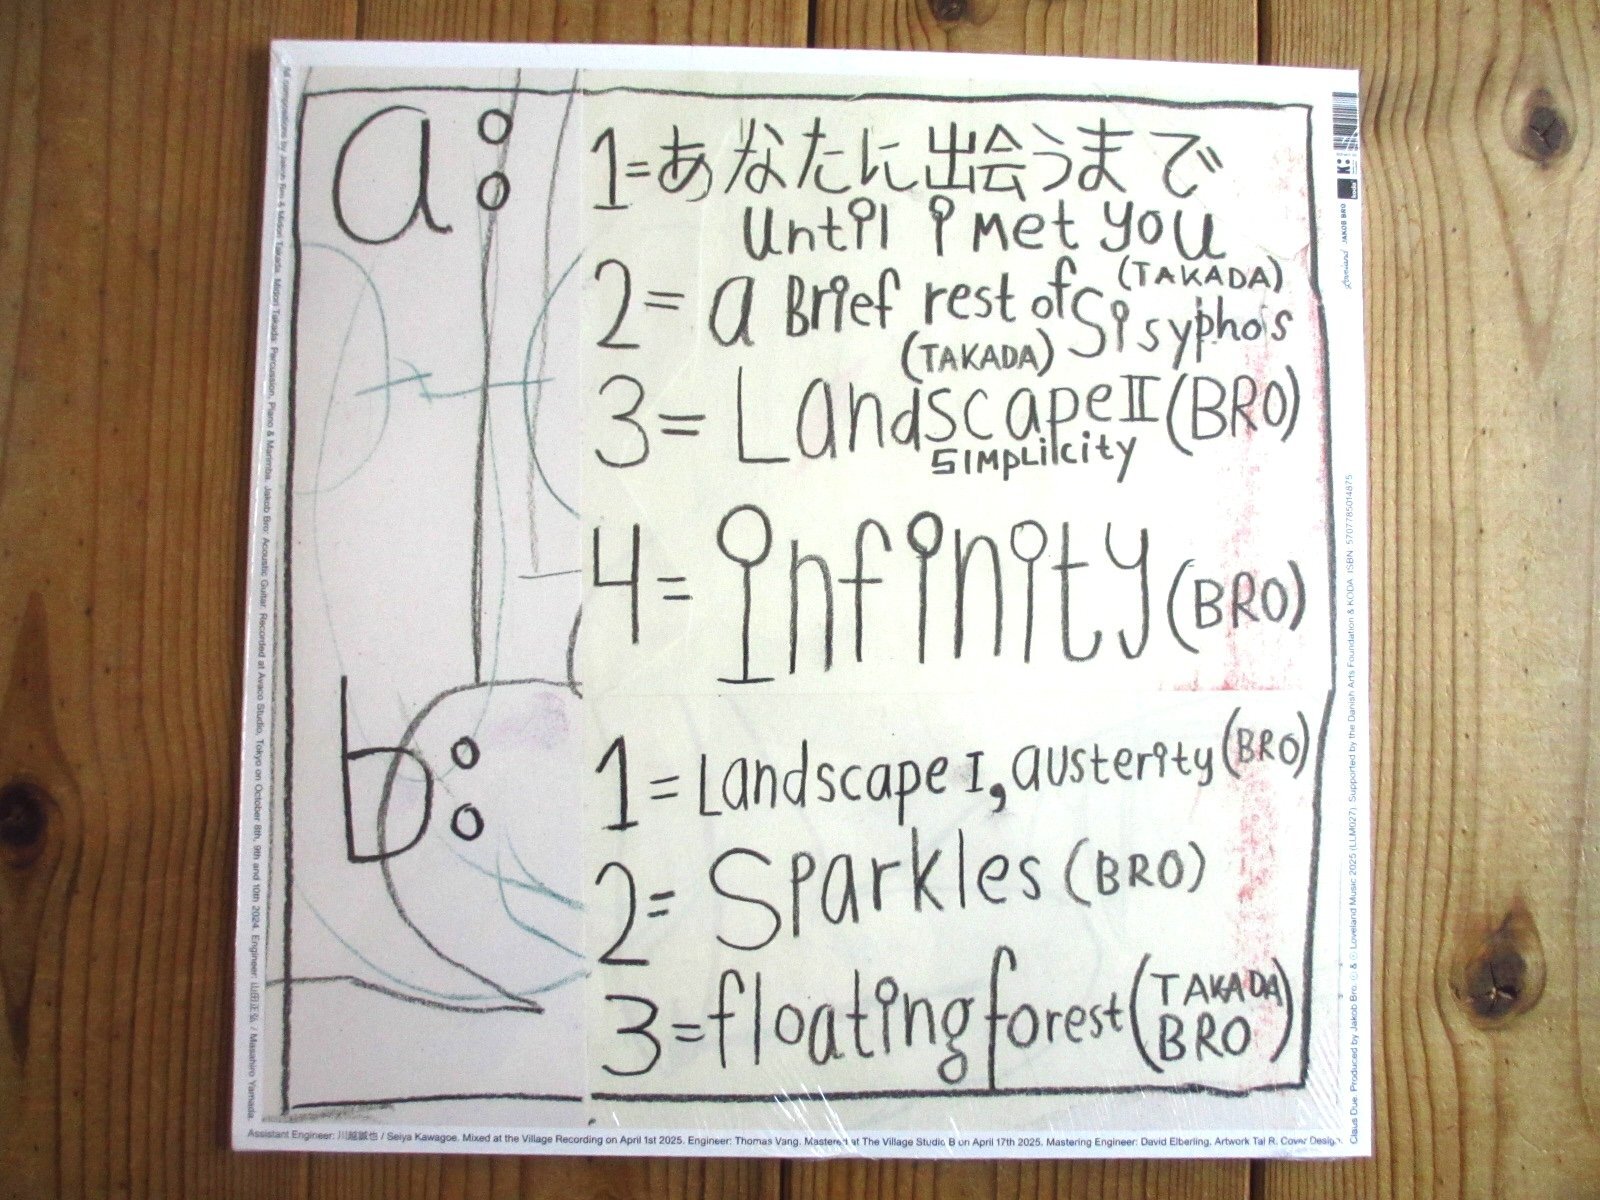 a:
1=あなたに出会うまで
until i met you
(TAKADA)
2= a Brief rest of Sisyphos
(TAKADA)
3= Landscape II (BRO)
SIMPLILCITY
4= infinity (BRO)
b:
1= Landscape I, austerity (BRO)
2= Sparkles (BRO)
3= floating forest (TAKADA
BRO)
All compositions by Jakob Bro & Midori Takada. Midori Takada: Percussion, Piano & Marimba. Jakob Bro: Acoustic Guitar. Recorded at Avaco Studio, Tokyo on October 8th, 9th and 10th 2024. Engineer: 山田正弘 / Masahiro Yamada.
Assistant Engineer: 川越誠也 / Seiya Kawagoe. Mixed at the Village Recording on April 1st 2025. Engineer: Thomas Vang. Mastered at The Village Studio B on April 17th 2025. Mastering Engineer: David Elberling. Artwork Tal R. Cover Design.
Claus Due. Produced by Jakob Bro. & Loveland Music 2025 (LLM027) Supported by the Danish Arts Foundation & KODA ISBN 5707785014875
Loveland JAKOB BRO
koda
K: